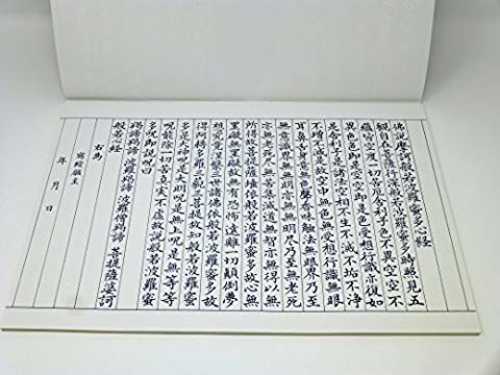 佛説摩訶般若波羅蜜多心経
観自在菩薩行深般若波羅蜜多時照見五
蘊皆空度一切苦厄舎利子色不異空空不
異色色即是空空即是色受想行識亦復如
是舎利子是諸法空相不生不滅不垢不浄
不増不減是故空中無色無受想行識無眼
耳鼻舌身意無色声香味触法無眼界乃至
無意識界無無明亦無無明尽乃至無老死
亦無老死尽無苦集滅道無智亦無得以無
所得故菩提薩埵依般若波羅蜜多故心無
罣礙無罣礙故無有恐怖遠離一切顛倒夢
想究竟涅槃三世諸佛依般若波羅蜜多故
得阿耨多羅三藐三菩提故知般若波羅蜜
多是大神呪是大明呪是無上呪是無等等
呪能除一切苦真実不虚故説般若波羅蜜
多呪即説呪曰
羯諦羯諦 波羅羯諦 波羅僧羯諦 菩提薩婆訶
般若心経
右為
寫経願主
年 月 日